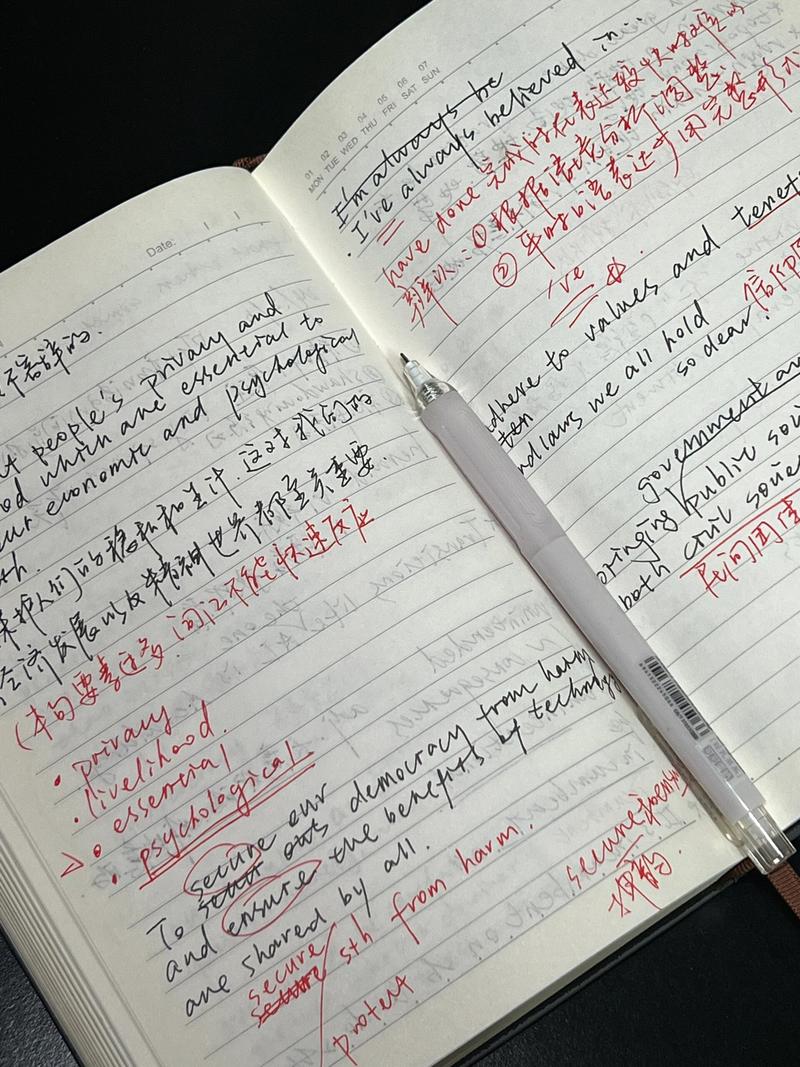 Date:
不容辞的.
people's privacy and
which are essential to
our economic and psychological
保护人们的隐私和生计.这对我们的
经济发展以及精神世界都至关重要.
(本句要素过多,词汇不能快速反应
privacy
livelihood.
essential
psychological
secure our
To out democracy from harm
and ensure the benefits of technology
are shared by all.
secure sth from harm.
protect
secure
01 02 03 04 05 06 07
MON TUE WED THU FRI SAT SUN
I'm always be
I've always believed in
have done 完成时在表达较快时
辨认:①根据语境分析调整.
②平时口语表达多用完整形式
've
adhere to values and tenets
and laws we all hold so dear.
government and
bringing public
both civil
民间团体